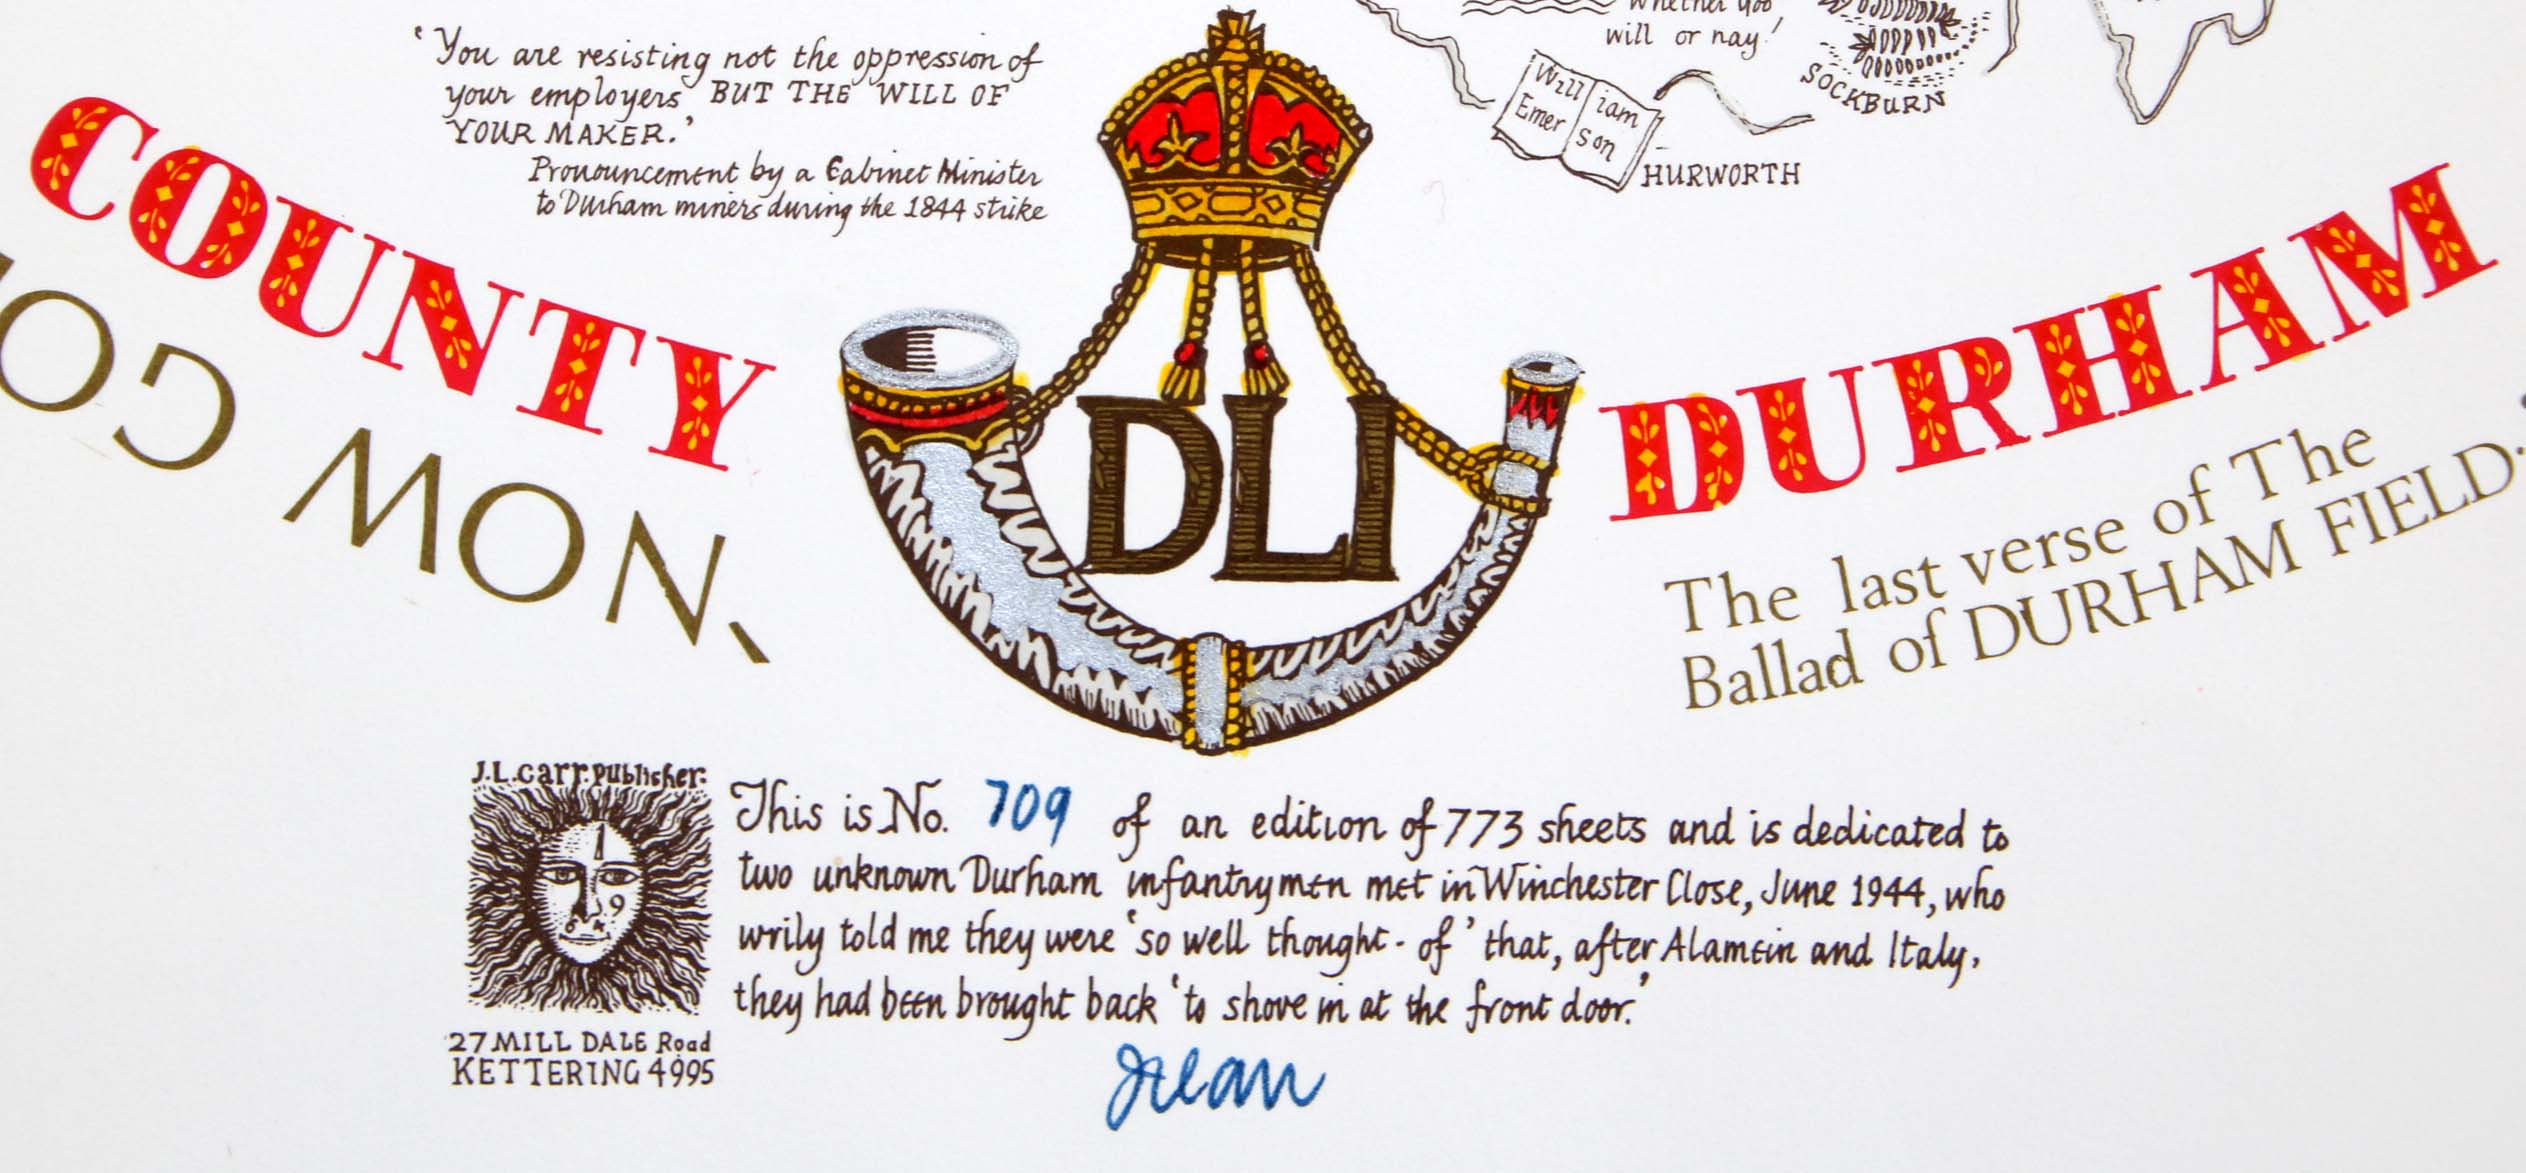 whether you
will or nay!
'You are resisting not the oppression of
your employers BUT THE WILL OF
YOUR MAKER.'
Pronouncement by a Cabinet Minister
to Durham miners during the 1844 strike
SOCKBURN
Will iam
Emer son
HURWORTH
COUNTY
DLI
DURHAM
'NOW GO
The last verse of The
Ballad of DURHAM FIELD.
J.L.Carr.Publisher.
This is No. 709 of an edition of 773 sheets and is dedicated to
two unknown Durham infantrymen met in Winchester Close, June 1944, who
wrily told me they were 'so well thought-of' that, after Alamein and Italy,
they had been brought back 'to shove in at the front door.'
27 MILL DALE Road
KETTERING 4995